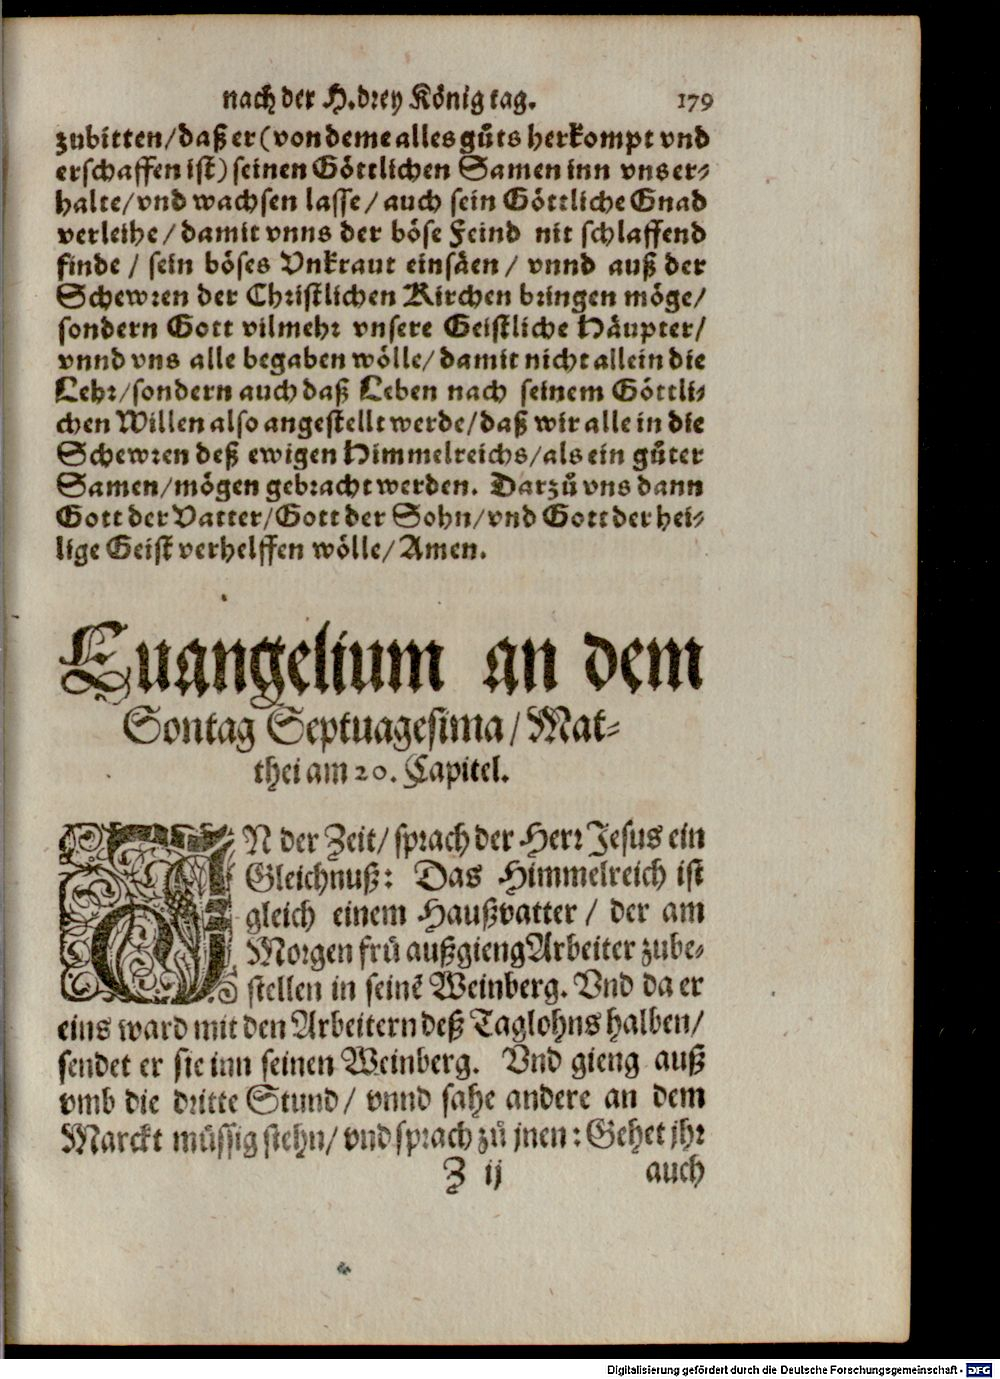 nach der H. drey König tag. 179
zubitten/daß er (von deme alles gůts herkompt vnd
erschaffen ist) seinen Göttlichen Samen inn vns er-
halte/vnd wachsen lasse/auch sein Göttliche Gnad
verleihe/damit vnns der böse Feind nit schlaffend
finde/sein böses Vnkraut einsäen/vnnd auß der
Schewren der Christlichen Kirchen bringen möge/
sondern Gott vilmehr vnsere Geistliche Häupter/
vnnd vns alle begaben wölle/damit nicht allein die
Lehr/sondern auch daß Leben nach seinem Göttli-
chen Willen also angestellt werde/daß wir alle in die
Schewren deß ewigen Himmelreichs/als ein gůter
Samen/mögen gebracht werden. Darzů vns dann
Gott der Vatter/Gott der Sohn/vnd Gott der hei-
lige Geist verhelffen wölle/Amen.
Euangelium an dem
Sontag Septuagesima/Mat-
thei am 20. Capitel.
IN der Zeit/sprach der Herr Jesus ein
Gleichnuß: Das Himmelreich ist
gleich einem Haußvatter/der am
Morgen frů außgieng Arbeiter zube-
stellen in seinē Weinberg. Vnd da er
eins ward mit den Arbeitern deß Taglohns halben/
sendet er sie inn seinen Weinberg. Vnd gieng auß
vmb die dritte Stund/vnnd sahe andere an dem
Marckt müssig stehn/vnd sprach zů jnen: Gehet jhr
Z ij auch
Digitalisierung gefördert durch die Deutsche Forschungsgemeinschaft - DFG